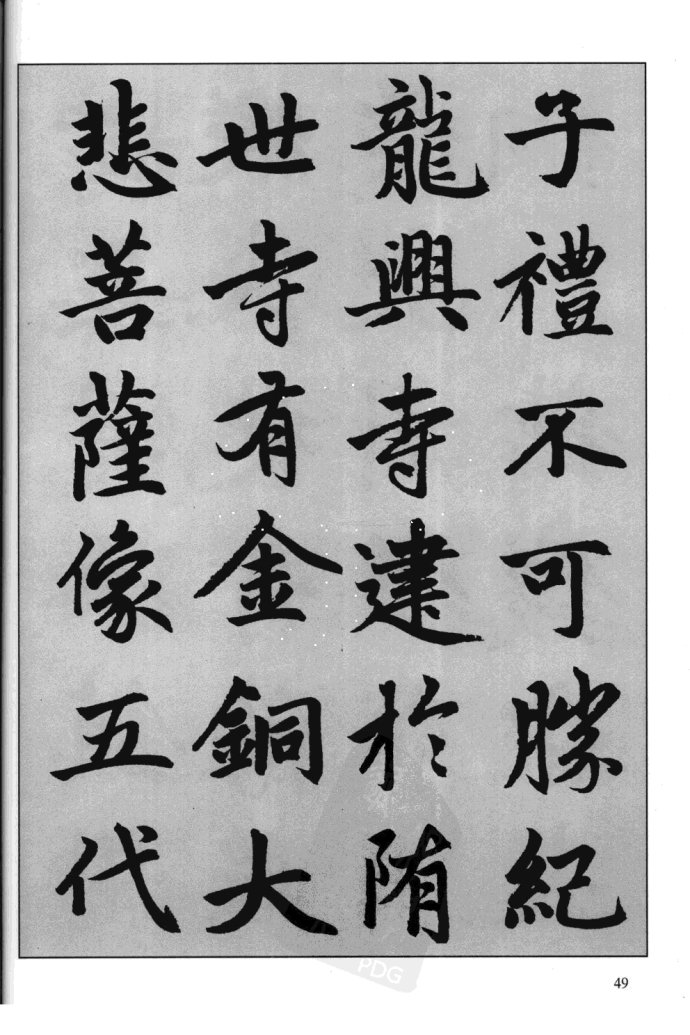 子禮不可勝紀
龍興寺建於陏
世寺有金銅大
悲菩薩像五代
PDG
49